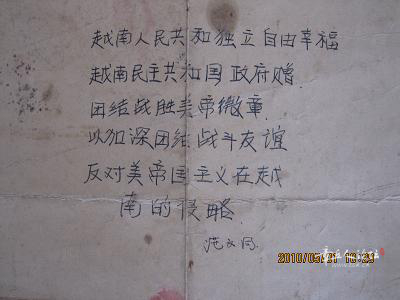 越南人民共和独立自由幸福
越南民主共和国政府赠
团结战胜美帝徽章
以加深团结战斗友谊
反对美帝国主义在越
南的侵略
范文同